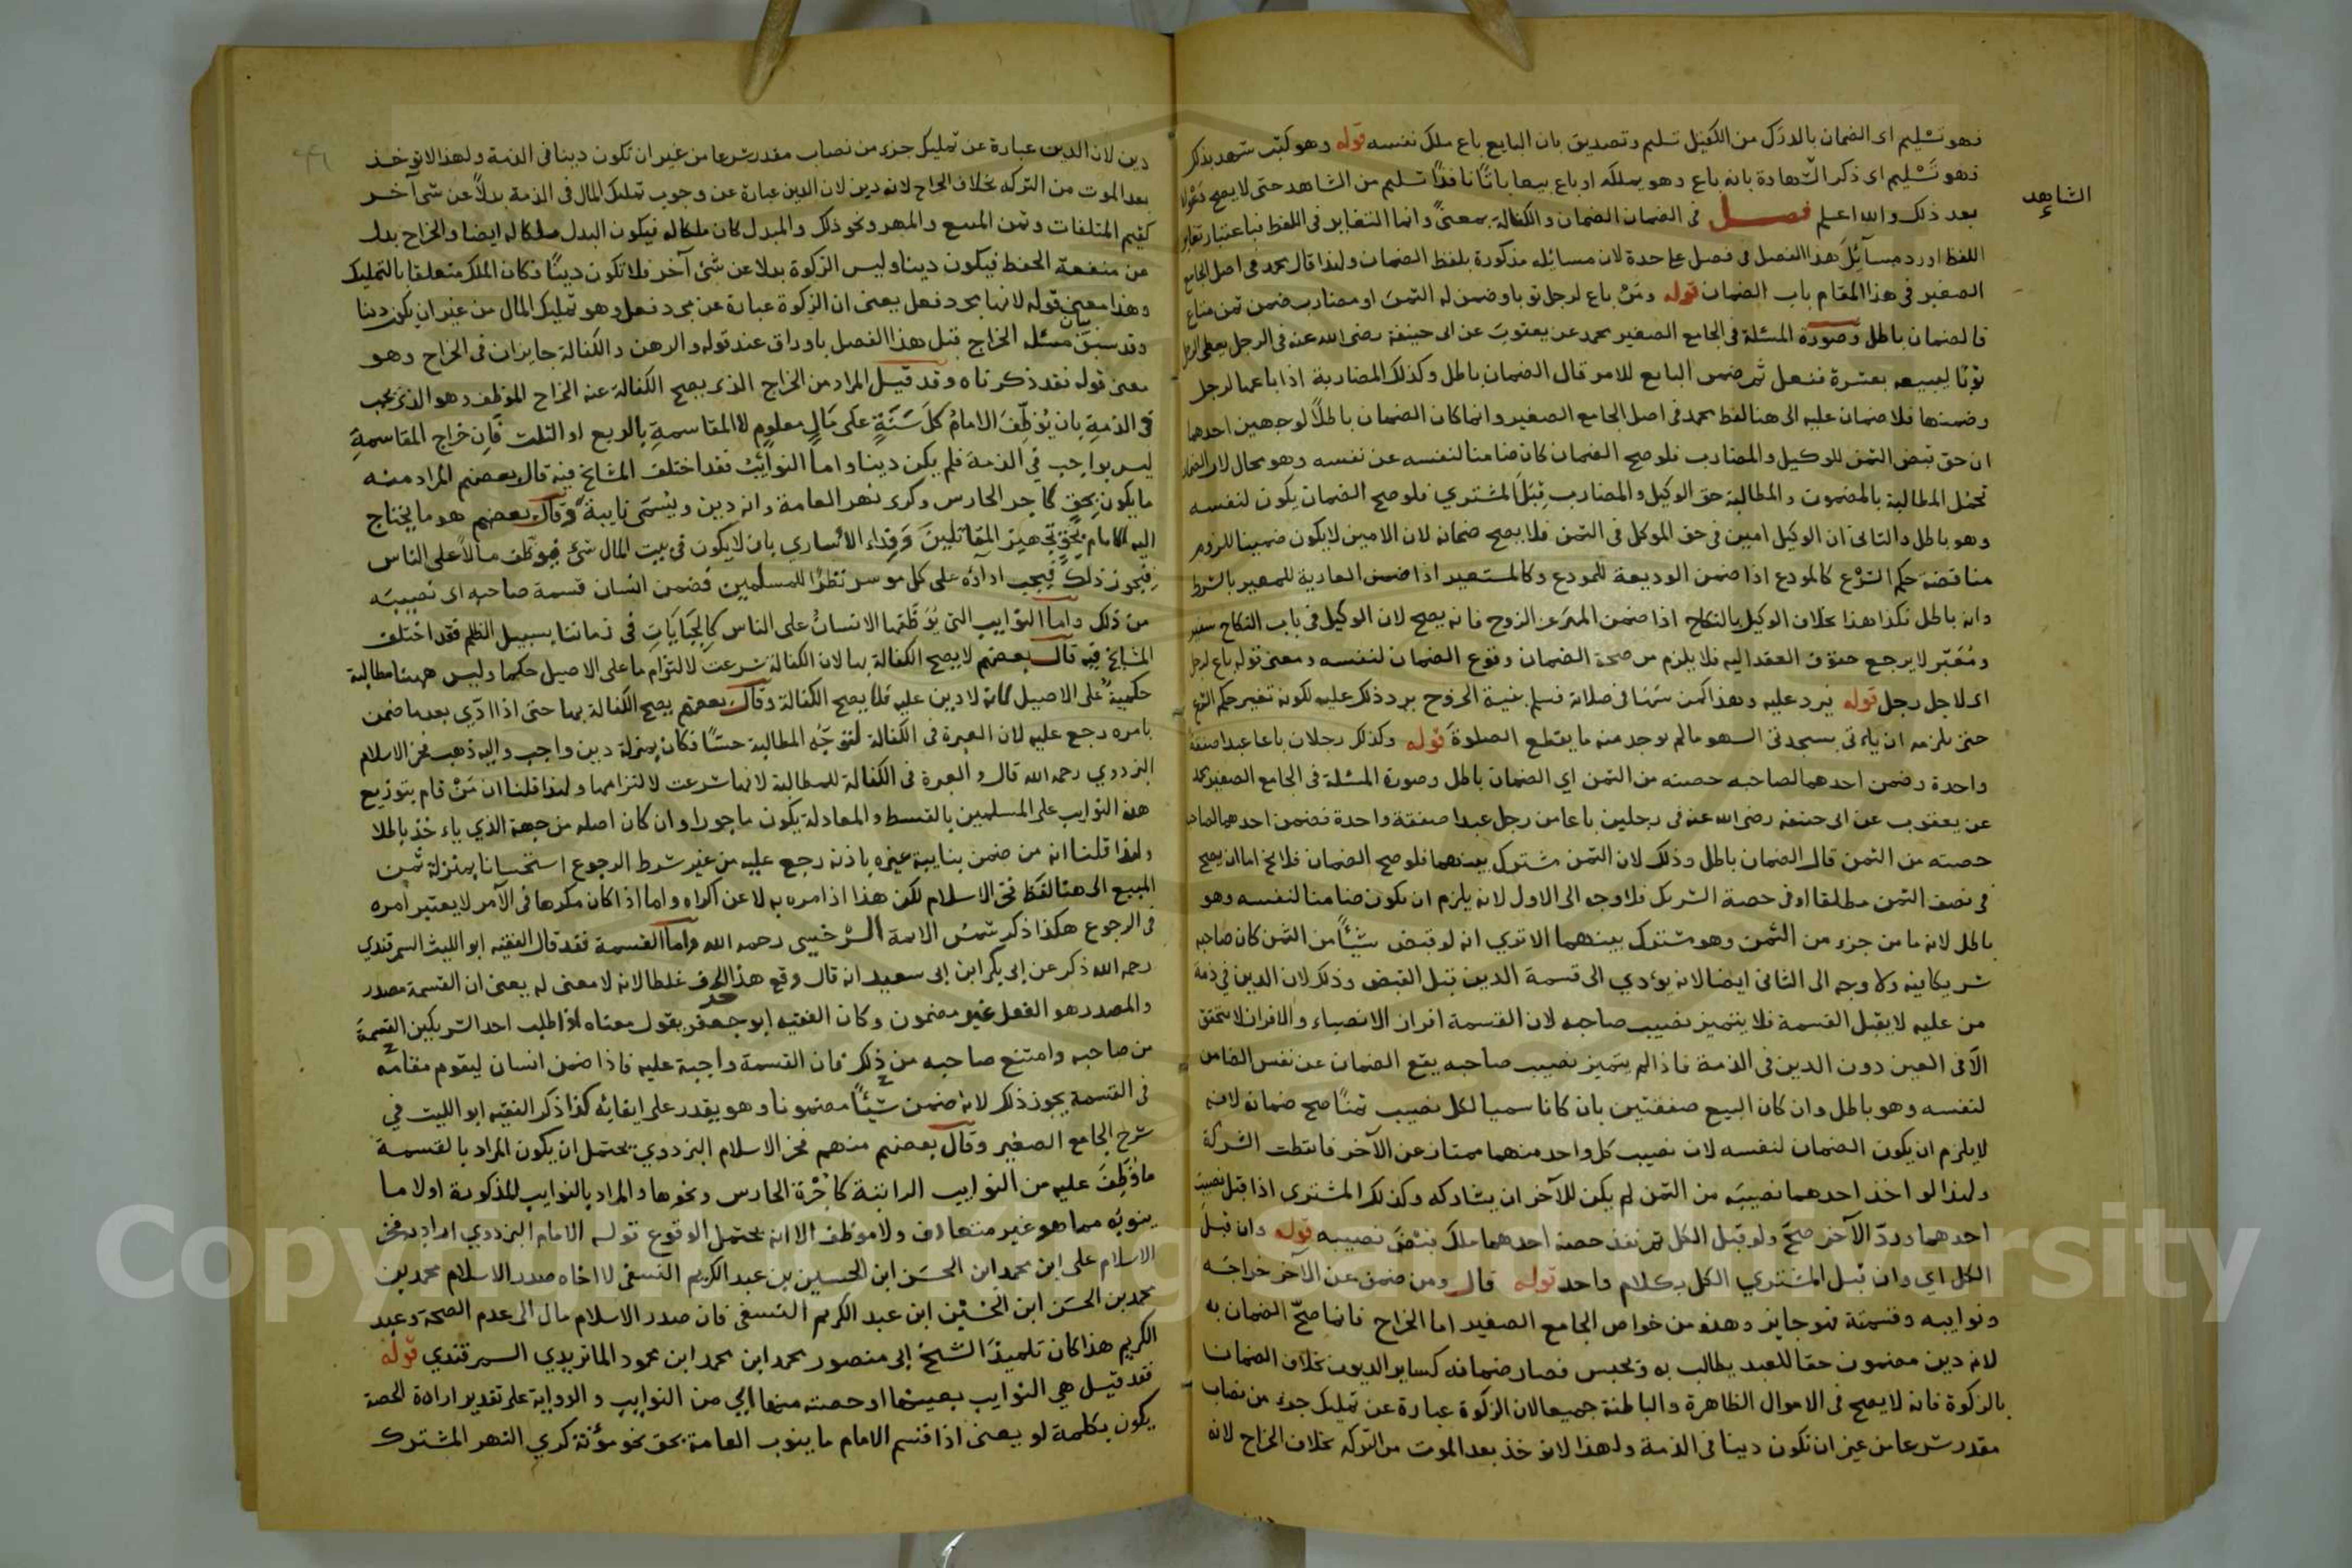 فهو تسليم اى الضمان بالدرك من الكفيل تسليم وتصديق بان البايع باع ملك نفسه قوله وهو كتب شهد بذكر
فهو تسليم اى ذكر الشهادة بانه باع وهو يملكه او باع بيعا باتا نافذا تسليم من الشاهد حتى لا يصح دعواه
الشاهد
بعد ذلك والله اعلم فصل فى الضمان الضمان والكفالة بمعنى وانما التغاير فى اللفظ فباعتبار تغاير
اللفظ اورد مسائل هذا الفصل فى فصل علحدة لان مسائله مذكورة بلفظ الضمان ولهذا قال محمد فى اصل الجامع
الصغير فى هذا المقام باب الضمان قوله ومن باع لرجل ثوبا وضمن له الثمن او مضارب ضمن ثمن متاع
فالضمان باطل وصورة المسئلة فى الجامع الصغير محمد عن يعقوب عن ابى حنيفة رضى الله عنه فى الرجل يعطى الرجل
ثوبا ليبيعه بعشرة ففعل ثم ضمن البايع للامر قال الضمان باطل وكذلك المضاربة اذا باعها لرجل
وضمنها فلا ضمان عليه الى هنا لفظ محمد فى اصل الجامع الصغير وانما كان الضمان باطلا لوجهين احدهما
ان حق قبض الثمن للوكيل والمضارب فلو صح الضمان كان ضامنا لنفسه عن نفسه وهو محال لان الضمان
تحمل المطالبة بالمضمون والمطالبة حق الوكيل والمضارب قبل المشتري فلو صح الضمان يكون لنفسه
وهو باطل والثانى ان الوكيل امين فى حق الموكل فى الثمن فلا يصح ضمانه لان الامين لا يكون ضمينا للزوم
مناقضة حكم الشرع كالمودع اذا ضمن الوديعة للمودع وكالمستعير اذا ضمن العارية للمعير بالشرط
وانه باطل فكذا هذا بخلاف الوكيل بالنكاح اذا ضمن المهر عن الزوج فانه يصح لان الوكيل فى باب النكاح سفير
ومعبر لا يرجع حقوق العقد اليه فلا يلزم من صحة الضمان وقوع الضمان لنفسه ومعنى قوله باع لرجل
اى لاجل رجل قوله فيرد عليه وهذا كمن سها فى صلاته فسلم بنية الخروج يرد ذلك عليه لكونه تغيير حكم الشرع
حتى يلزمه ان ياتى بسجدتى السهو مالم يوجد منه ما يقطع الصلوة قوله وكذلك رجلان باعا عبدا صفقة
واحدة وضمن احدهما لصاحبه حصته من الثمن اي الضمان باطل وصورة المسئلة فى الجامع الصغير محمد
عن يعقوب عن ابى حنيفة رضى الله عنه فى رجلين باعا من رجل عبدا صفقة واحدة فضمن احدهما لصاحبه
حصته من الثمن قال الضمان باطل وذلك لان الثمن مشترك بينهما فلو صح الضمان فلا يخ اما ان يصح
فى نصف الثمن مطلقا او فى حصة الشريك فلا وجه الى الاول لانه يلزم ان يكون ضامنا لنفسه وهو
باطل لانه ما من جزء من الثمن وهو مشترك بينهما الا تري انه لو قبض شيئا من الثمن كان صاحبه
شريكا فيه ولا وجه الى الثانى ايضا لانه يؤدي الى قسمة الدين قبل القبض وذلك لان الدين في ذمة
من عليه لا يقبل القسمة فلا يتميز نصيب صاحبه لان القسمة افراز الانصباء والافراز لا يتحقق
الا فى العين دون الدين فى الذمة فاذا لم يتميز نصيب صاحبه يقع الضمان عن نفس الضامن
لنفسه وهو باطل وان كان البيع صفقتين بان كانا سميا لكل نصيب ثمنا صح ضمانه لانه
لا يلزم ان يكون الضمان لنفسه لان نصيب كل واحد منهما ممتاز عن الآخر فانقطعت الشركة
ولهذا لو اخذ احدهما نصيبه من الثمن لم يكن للآخر ان يشاركه وكذلك المشترى اذا قبل نصيب
احدهما ورد الآخر صح ولو قبل الكل ثم نقد حصة احدهما ملك قبض نصيبه قوله وان قبل
الكل اي وان قبل المشتري الكل بكلام واحد قوله قال ومن ضمن عن الآخر خراجه
ونوايبه وقسمته فهو جايز وهذه من خواص الجامع الصغير اما الخراج فانما صح الضمان به
لانه دين مضمون حقا للعبد يطالب به ويحبس فصار ضمانه كساير الديون بخلاف الضمان
بالزكوة فانه لا يصح فى الاموال الظاهرة والباطنة جميعا لان الزكوة عبارة عن تمليك جزء من نصاب
مقدر شرعا من غير ان تكون دينا فى الذمة ولهذا لا تؤخذ بعد الموت من التركة بخلاف الخراج لانه
دين لان الدين عبارة عن تمليك جزء من نصاب مقدر شرعا من غير ان تكون دينا فى الذمة ولهذا لا تؤخذ
بعد الموت من التركه بخلاف الخراج لانه دين لان الدين عبارة عن وجوب تمليك المال فى الذمة بدلا عن شئ آخر
كقيم المتلفات وثمن المبيع والمهر ونحو ذلك والمبدل كان ملكا له فيكون البدل ملكا له ايضا والخراج بدل
عن منفعة الحفظ فيكون دينا وليس الزكوة بدلا عن شئ آخر فلا تكون دينا فكان الملك متعلقا بالتمليك
وهذا معنى قوله لانها مجرد فعل يعنى ان الزكوة عبارة عن مجرد فعل وهو تمليك المال من غير ان يكون دينا
وقد سبق بيان مسئلة الخراج قبل هذا الفصل باوراق عند قوله والرهن والكفالة جايزان فى الخراج وهو
معنى قوله فقد ذكرناه وقد قيل المراد من الخراج الذى يصح الكفالة عنه الخراج الموظف وهو الذى يجب
فى الذمة بان يوظف الامام كل سنة على مال معلوم لا المقاسمة بالربع او الثلث فان خراج المقاسمة
ليس بواجب في الذمة فلم يكن دينا واما النوائب فقد اختلف المشايخ فيه قال بعضهم المراد منه
ما يكون بحق كاجر الحارس وكرى نهر العامة وانه دين ويسمى نايبة وقال بعضهم هو ما يحتاج
اليه الامام بحق تجهيز المقاتلين وفداء الاسارى بان لا يكون فى بيت المال شئ فيوظف مالا على الناس
فيجوز ذلك فيجب اداؤه على كل موسر نظرا للمسلمين فضمن انسان قسمة صاحبه اى نصيبه
من ذلك واما النوايب التى يوظفها الانسان على الناس كالجبايات فى زماننا بسبيل الظلم فقد اختلف
المشايخ فيه قال بعضهم لا يصح الكفالة بها لان الكفالة شرعت لالتزام ما على الاصيل حكما وليس ههنا مطالبة
حكمية على الاصيل لانه لا دين عليه فلا يصح الكفالة وقال بعضهم يصح الكفالة بها حتى اذا ادى بعد ما ضمن
بامره رجع عليه لان العبرة فى الكفالة لتوجه المطالبة حسا فكان بمنزلة دين واجب واليه ذهب فخر الاسلام
البزدوي رحمه الله قال والعبرة فى الكفالة للمطالبة لانها شرعت لالتزامها ولهذا قلنا ان من قام بتوزيع
هذه النوايب على المسلمين بالقسط والمعادلة يكون ماجورا وان كان اصله من جهة الذي ياءخذ باطلا
ولهذا قلنا انه من ضمن بنايبة غيره باذنه رجع عليه من غير شرط الرجوع استحسانا بمنزلة ثمن
المبيع الى هنا لفظ فخر الاسلام لكن هذا اذا امره به لا عن اكراه واما اذا كان مكرها فى الآمر لا يعتبر امره
فى الرجوع هكذا ذكر شمس الائمة السرخسى رحمه الله واما القسمة فقد قال الفقيه ابو الليث السمرقندي
رحمه الله ذكر عن ابى بكر ابن ابى سعيد انه قال وقع هذا الحرف غلطا لانه لا معنى له يعنى ان القسمة مصدر
والمصدر هو الفعل غير مضمون وكان الفقيه ابو جعفر يقول معناه اذا طلب احد الشريكين القسمة
من صاحبه وامتنع صاحبه من ذلك فان القسمة واجبة عليه فاذا ضمن انسان ليقوم مقامه
فى القسمة يجوز ذلك لانه ضمن شيئا مضمونا وهو يقدر على ايفائه كذا ذكر الفقيه ابو الليث في
شرح الجامع الصغير وقال بعضهم منهم فخر الاسلام البزدوي يحتمل ان يكون المراد بالقسمة
ما وظف عليه من النوايب الراتبة كاجرة الحارس ونحوها والمراد بالنوايب المذكورة اولا ما
ينوبه مما هو غير متعارف ولا موظف الا انه يحتمل الوقوع قوله الامام البزدوي اراد به فخر
الاسلام على ابن محمد ابن الحسن ابن الحسين بن عبد الكريم النسفى لا اخاه صدر الاسلام محمد بن
محمد بن الحسن ابن الحسين ابن عبد الكريم النسفى فان صدر الاسلام مال الى عدم الصحة وعبد
الكريم هذا كان تلميذ الشيخ ابى منصور محمد ابن محمد ابن محمود الماتريدي السمرقندي قوله
فقد قيل هي النوايب بعينها او حصته منها ابي من النوايب والرواية على تقدير ارادة الحصة
يكون بكلمة لو يعنى اذا قسم الامام ما ينوب العامة بحق نحو مؤنة كري النهر المشترك
Copyright © King Saud University